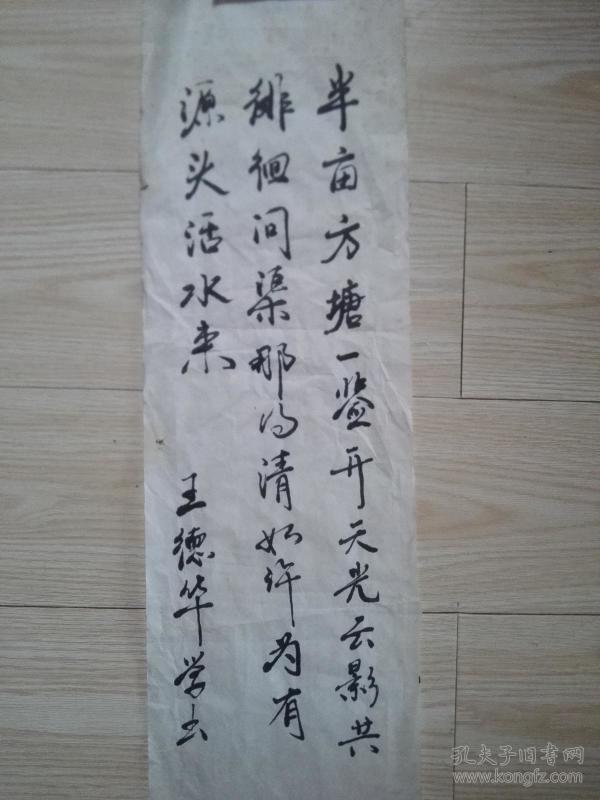 半亩方塘一鉴开天光云影共
徘徊问渠那得清如许为有
源头活水来
王德华学书
孔夫子旧书网
www.kongfz.com